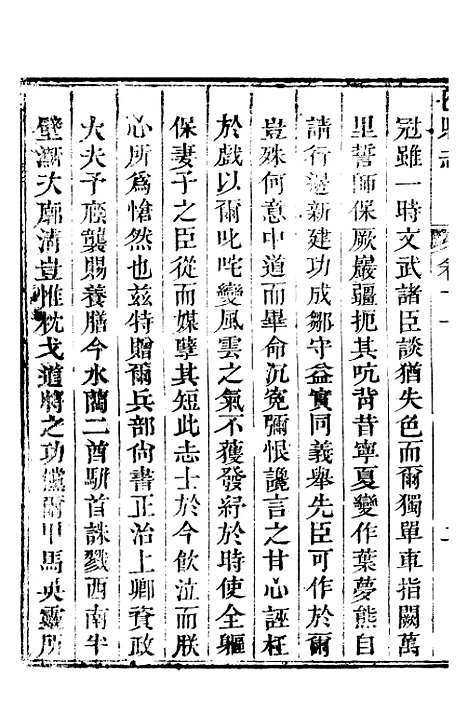 冠雖一時文武諸臣談猶失色而爾獨單車指闕萬
里誓師保厥巖疆扼其吭背昔寧夏變作葉夢熊自
請行邊新建功成鄒守益實同義舉先臣可作於爾
豈殊何意中道而畢命沉冤彌恨讒言之甘心誣枉
於戲以爾叱咤變風雲之氣不獲發紓於時使全軀
保妻子之臣從而媒孽其短此志士於今飲泣而朕
心所為愴然也茲特贈爾兵部尚書正治上卿資政
大夫予廕襲賜養膳今水藺二酋駢首誅戮西南半
壁漸次廓清豈惟枕戈道將之功儻爾甲馬英靈所